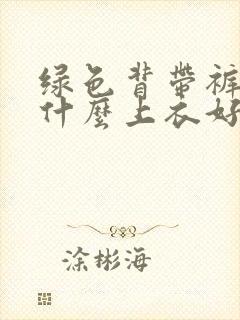 绿色背带裤
什麼上衣好
涂彬海